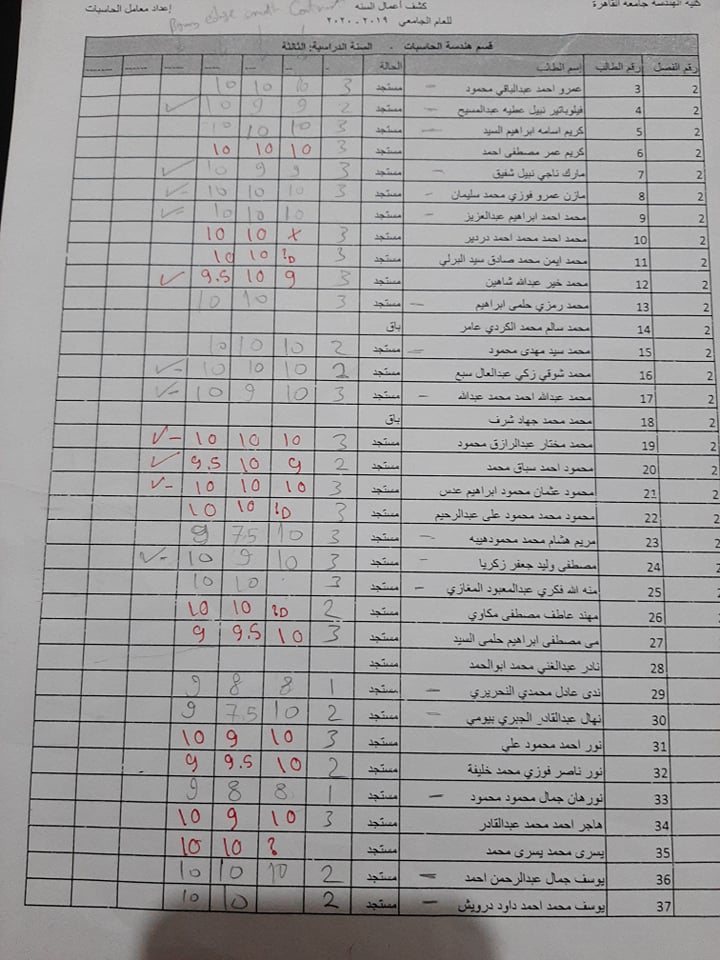 كلية الهندسة جامعة القاهرة كشف أعمال السنه إعداد معامل الحاسبات
للعام الجامعي ٢٠١٩ - ٢٠٢٠
قسم هندسة الحاسبات - السنة الدراسية: الثالثة
رقم الفصل رقم الطالب إسم الطالب الحالة
2 3 عمرو احمد عبدالباقي محمود – مستجد 3 10 10 10
2 4 فيلوباتير نبيل عطيه عبدالمسيح – مستجد 2 9 9 10 ✓
2 5 كريم اسامه ابراهيم السيد – مستجد 3 10 10 10
2 6 كريم عمر مصطفى احمد مستجد 3 10 10 10
2 7 مارك ناجي نبيل شفيق – مستجد 3 9 9 10 ✓
2 8 مازن عمرو فوزي محمد سليمان – مستجد 3 10 10 10 ✓–
2 9 محمد احمد ابراهيم عبدالعزيز – مستجد 10 10 10 ✓–
2 10 محمد احمد محمد احمد دردير مستجد 3 x 10 10
2 11 محمد ايمن محمد صادق سيد البرلي مستجد 3 10 10
2 12 محمد خير عبدالله شاهين مستجد 3 9 10 9.5 ✓
2 13 محمد رمزي حلمى ابراهيم – مستجد 3 10 10
2 14 محمد سالم محمد الكردي عامر باق
2 15 محمد سيد مهدى محمود – مستجد 2 10 10 10
2 16 محمد شوقي زكي عبدالعال سبع مستجد 2 10 10 10 ✓–
2 17 محمد عبدالله احمد محمد عبدالله – مستجد 3 10 9 10 ✓–
2 18 محمد محمد جهاد شرف باق
2 19 محمد مختار عبدالرازق محمود مستجد 3 10 10 10 ✓–
2 20 محمود احمد سباق محمد مستجد 2 9 10 9.5 ✓
2 21 محمود عثمان محمود ابراهيم عدس مستجد 3 10 10 10 ✓–
2 22 محمود محمد محمود على عبدالرحيم مستجد 3 10 10
2 23 مريم هشام محمد محمودهيبه – مستجد 3 10 7.5 9
2 24 مصطفى وليد جعفر زكريا – مستجد 3 10 9 10 ✓–
2 25 منه الله فكري عبدالمعبود المغازي – مستجد 3 10 10
2 26 مهند عاطف مصطفى مكاوي مستجد 2 10 10
2 27 مى مصطفى ابراهيم حلمى السيد مستجد 3 10 9.5 9
2 28 نادر عبدالغني محمد ابوالحمد مستجد
2 29 ندى عادل محمدي النحريري – مستجد 1 8 8 9
2 30 نهال عبدالقادر الجبري بيومي – مستجد 2 10 7.5 9
2 31 نور احمد محمود علي مستجد 3 10 9 10
2 32 نور ناصر فوزي محمد خليفة مستجد 2 10 9.5 9
2 33 نورهان جمال محمود محمود – مستجد 1 8 8 9
2 34 هاجر احمد محمد عبدالقادر مستجد 3 10 9 10
2 35 يسرى محمد يسرى محمد مستجد ? 10 10
2 36 يوسف جمال عبدالرحمن احمد – مستجد 2 10 10 10
2 37 يوسف محمد احمد داود درويش – مستجد 2 10 10